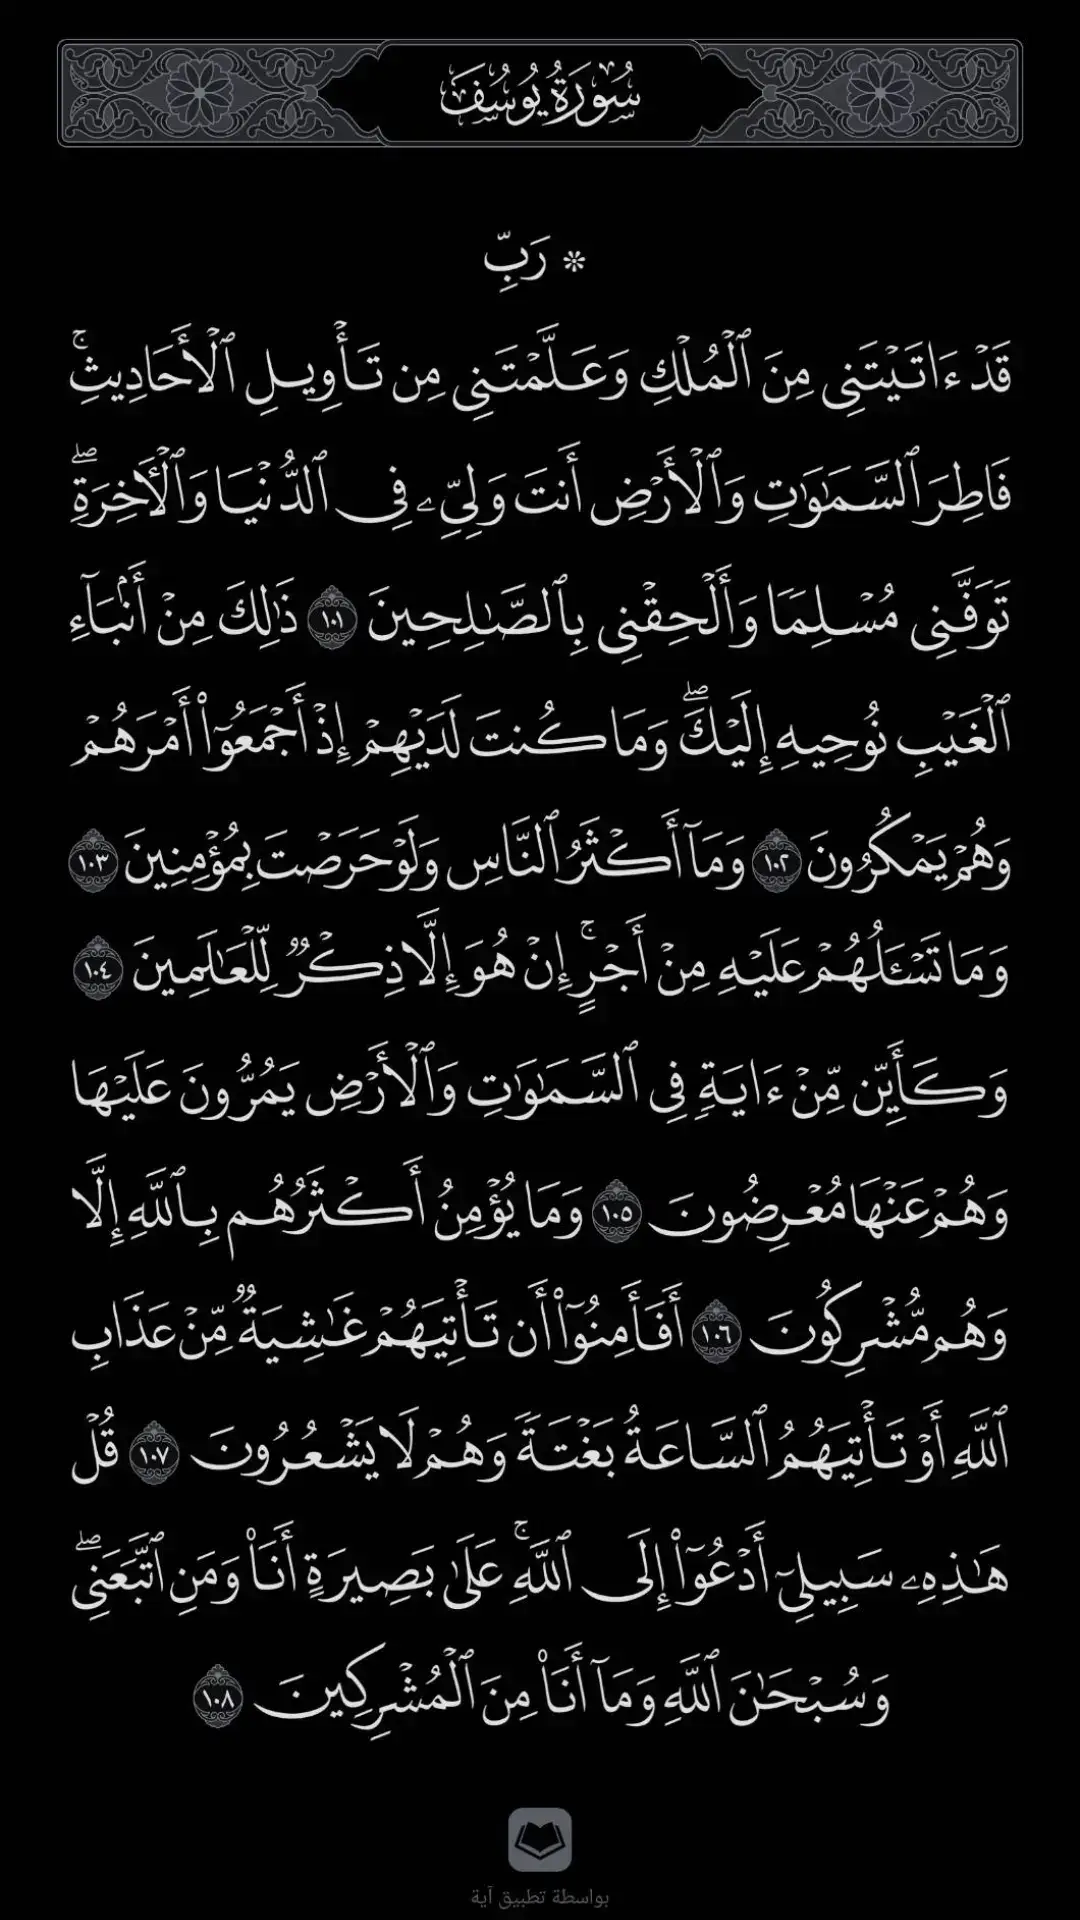 سُورَةُ يُوسُفَ
۞ رَبِّ
قَدۡ ءَاتَيۡتَنِي مِنَ ٱلۡمُلۡكِ وَعَلَّمۡتَنِي مِن تَأۡوِيلِ ٱلۡأَحَادِيثِۚ
فَاطِرَ ٱلسَّمَٰوَٰتِ وَٱلۡأَرۡضِ أَنتَ وَلِيِّۦ فِي ٱلدُّنۡيَا وَٱلۡأٓخِرَةِۖ
تَوَفَّنِي مُسۡلِمٗا وَأَلۡحِقۡنِي بِٱلصَّٰلِحِينَ ١٠١ ذَٰلِكَ مِنۡ أَنۢبَآءِ
ٱلۡغَيۡبِ نُوحِيهِ إِلَيۡكَۖ وَمَا كُنتَ لَدَيۡهِمۡ إِذۡ أَجۡمَعُوٓاْ أَمۡرَهُمۡ
وَهُمۡ يَمۡكُرُونَ ١٠٢ وَمَآ أَكۡثَرُ ٱلنَّاسِ وَلَوۡ حَرَصۡتَ بِمُؤۡمِنِينَ ١٠٣
وَمَا تَسۡـَٔلُهُمۡ عَلَيۡهِ مِنۡ أَجۡرٍۚ إِنۡ هُوَ إِلَّا ذِكۡرٞ لِّلۡعَٰلَمِينَ ١٠٤
وَكَأَيِّن مِّنۡ ءَايَةٖ فِي ٱلسَّمَٰوَٰتِ وَٱلۡأَرۡضِ يَمُرُّونَ عَلَيۡهَا
وَهُمۡ عَنۡهَا مُعۡرِضُونَ ١٠٥ وَمَا يُؤۡمِنُ أَكۡثَرُهُم بِٱللَّهِ إِلَّا
وَهُم مُّشۡرِكُونَ ١٠٦ أَفَأَمِنُوٓاْ أَن تَأۡتِيَهُمۡ غَٰشِيَةٞ مِّنۡ عَذَابِ
ٱللَّهِ أَوۡ تَأۡتِيَهُمُ ٱلسَّاعَةُ بَغۡتَةٗ وَهُمۡ لَا يَشۡعُرُونَ ١٠٧ قُلۡ
هَٰذِهِۦ سَبِيلِيٓ أَدۡعُوٓاْ إِلَى ٱللَّهِۚ عَلَىٰ بَصِيرَةٍ أَنَا۠ وَمَنِ ٱتَّبَعَنِيۖ
وَسُبۡحَٰنَ ٱللَّهِ وَمَآ أَنَا۠ مِنَ ٱلۡمُشۡرِكِينَ ١٠٨
بواسطة تطبيق آية